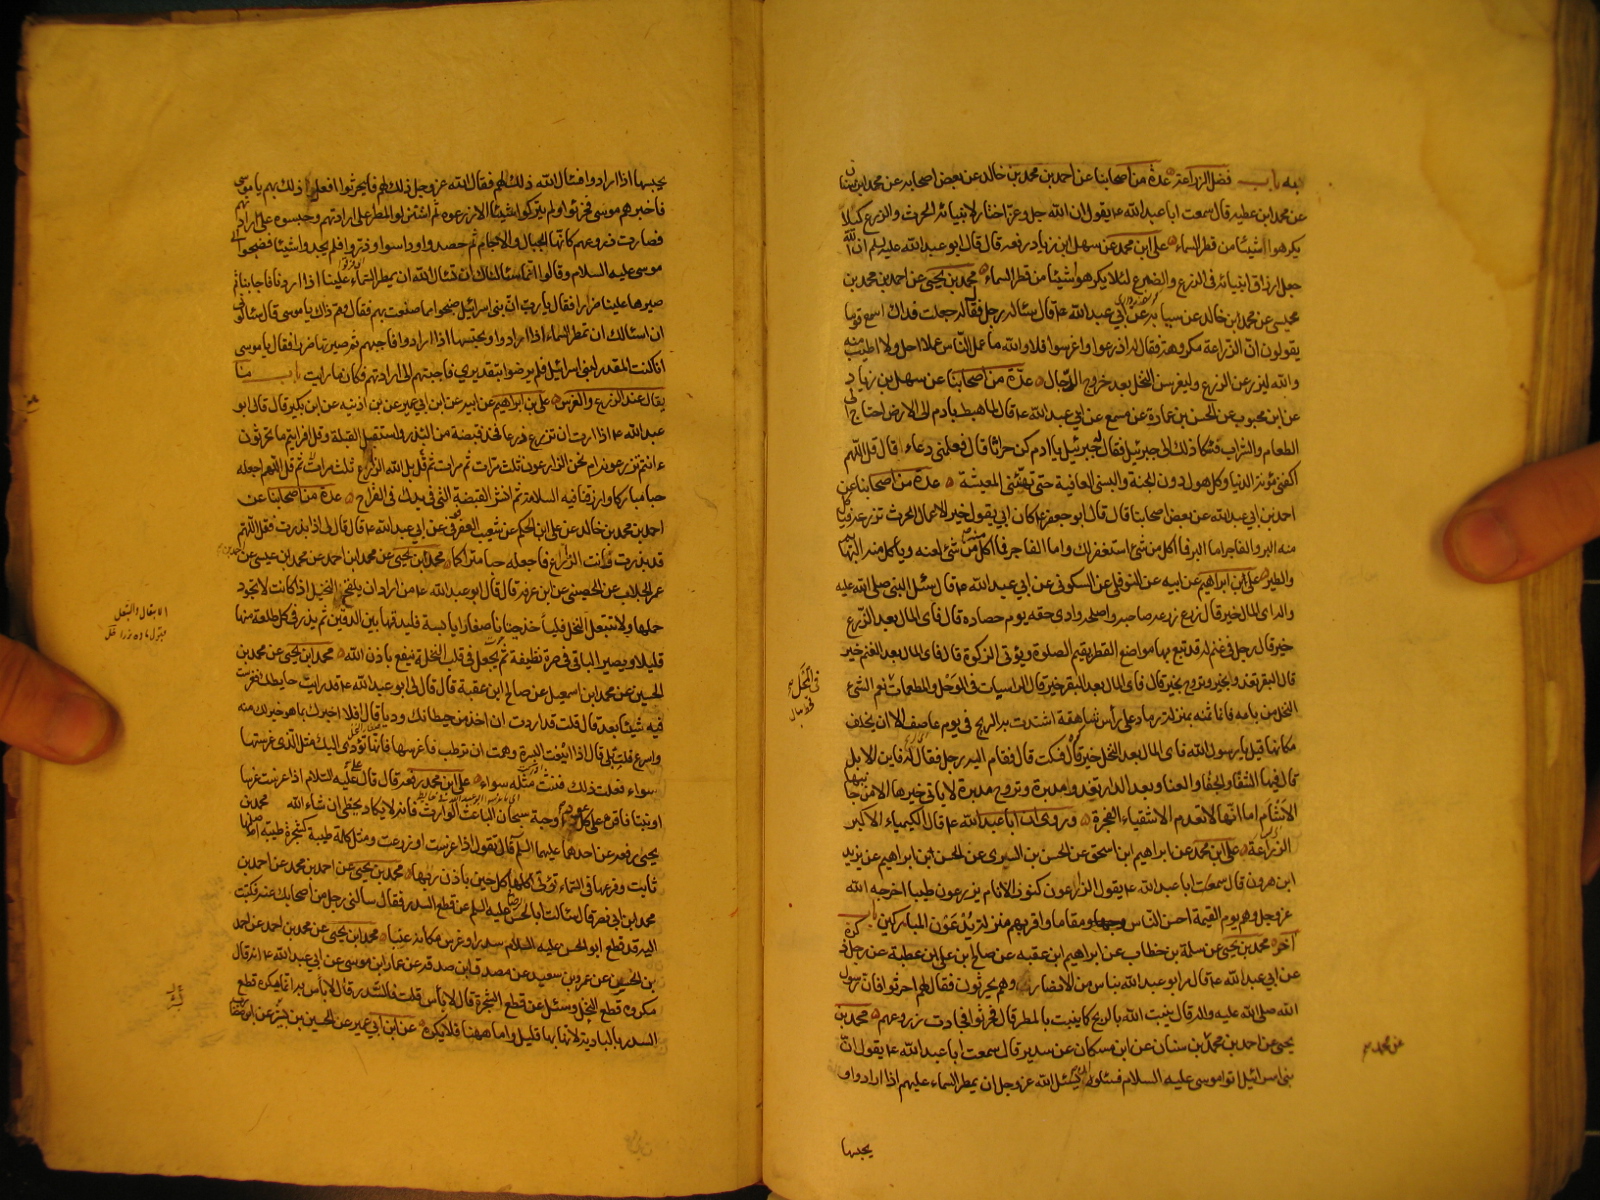 به باب فضل الزراعة عدة من اصحابنا عن احمد بن محمد بن خالد عن بعض اصحابه عن محمد بن سنان
عن محمد ابن عطيه قال سمعت ابا عبد الله ع يقول ان الله جل وعز اختار لانبيائه الحرث والزرع كيلا
يكرهوا شيئا من قطر السماء على ابن محمد عن سهل ابن زياد رفعه قال قال ابو عبد الله عليه لم ان الله
جعل ارزاق انبيائه فى الزرع والضرع لئلا يكرهوا شيئا من قطر السماء محمد بن يحيى عن احمد بن محمد بن
عيسى عن محمد ابن خالد عن سيابه عن ابي عبد الله ع قال سئاله رجل فقال له جعلت فداك اسمع قوما
يقولون ان الزراعة مكروهة فقال له ازرعوا واغرسوا فلا والله ما عمل الناس عملا احل ولا اطيب منه
والله ليزرعن الزرع وليغرسن النخل بعد خروج الدجال عدة من اصحابنا عن سهل بن زياد
عن ابن محبوب عن الحسن بن عمارة عن مسمع عن ابي عبد الله ع قال لما هبط بادم الى الارض احتاج الى
الطعام والشراب فشكا ذلك الى جبرئيل فقال له جبرئيل يا ادم كن حراثا قال فعلمنى دعاء قال قل اللهم
اكفنى مؤنة الدنيا وكل هول دون الجنة والبسنى العافية حتى تهنئنى المعيشة عدة من اصحابنا عن
احمد بن ابي عبد الله عن بعض اصحابنا قال قال ابو جعفر ع كان ابي يقول خير الاعمال الحرث تزرعه فياكل
منه البر والفاجر اما البر فما اكل من شئ استغفر لك واما الفاجر فما اكل منه من شئ لعنه وياكل منه البهائم
والطير على ابن ابراهيم عن ابيه عن النوفلى عن السكونى عن ابي عبد الله ع قال سئل النبى صلى الله عليه
واله اى المال خير قال زرع زرعه صاحبه واصلحه وادى حقه يوم حصاده قال فاى المال بعد الزرع
خير قال رجل فى غنم له قد تبع بها مواضع القطر يقيم الصلوة ويؤتى الزكوة قال فاى المال بعد الغنم خير
قال البقر تغدو بخير وتروح بخير قال فاى المال بعد البقر خير قال الراسيات فى الوحل والمطعمات فى المحل نعم الشئ
النخل من باعه فانما ثمنه بمنزلة رماد على رأس شاهقة اشتدت به الريح فى يوم عاصف الا ان يخلف
مكانها قيل يا رسول الله فاى المال بعد النخل خير قال فسكت قال فقام اليه رجل فقال له فاين الابل
قال فيها الشقاء والجفاء والعناء وبعد الدار تغدو مدبرة وتروح مدبرة لا ياتى خيرها الا من جانبها
الاشئم اما انها لا تعدم الاشقياء الفجرة وروى ان ابا عبد الله ع قال الكيمياء الاكبر
الزراعة على ابن محمد عن ابراهيم ابن اسحق عن الحسن بن السرى عن الحسن ابن ابراهيم عن يزيد
ابن هرون قال سمعت ابا عبد الله ع يقول الزارعون كنوز الانام يزرعون طيبا اخرجه الله
عز وجل وهم يوم القيمة احسن الناس مقاما واقربهم منزلة يدعون المباركين باب
اخر محمد بن يحيى عن سلمة بن خطاب عن ابراهيم ابن عقبه عن صالح ابن على ابن عطية عن رجل ذكره
عن ابي عبد الله ع قال مر ابو عبد الله بناس من الانصار وهم يحرثون فقال لهم احرثوا فان رسول
الله صلى الله عليه واله قال ينبت الله بالريح كما ينبت بالمطر قال فحرثوا فجادت زروعهم محمد بن
يحيى عن احمد بن محمد بن سنان عن ابن مسكان عن سدير قال سمعت ابا عبد الله ع يقول ان
بنى اسرائيل اتوا موسى عليه السلام فسئلوه ان يسئل الله عز وجل ان يمطر السماء عليهم اذا ارادوا و
يحبسها
فى المحل
عن محمد
يحبسها اذا ارادوا فسئال الله ذلك لهم فقال الله عز وجل ذلك لهم فاخبرهم موسى
فحرثوا ولم يتركوا شيئا الا زرعوه ثم استنزلوا المطر على ارادتهم وحبسوه على ارادتهم
فصارت زروعهم كانها الجبال والاجام ثم حصدوا وداسوا وذروا فلم يجدوا شيئا فضجوا الى
موسى عليه السلام وقالوا انما سئالناك ان تسئال الله ان يمطر السماء علينا اذا اردنا فاجابنا ثم
صيرها علينا ضررا فقال يا رب ان بنى اسرائيل ضجوا مما صنعت بهم فقال ومم ذاك يا موسى قال سئالونى
ان اسئالك ان تمطر السماء اذا ارادوا وتحبسها اذا ارادوا فاجبتهم ثم صيرتها ضررا فقال يا موسى
انا كنت المقدر لبنى اسرائيل فلم يرضوا بتقديرى فاجبتهم الى ارادتهم فكان ما رايت باب ما
يقال عند الزرع والغرس على بن ابراهيم عن ابيه عن ابن ابي عمير عن بن اذينه عن ابن بكير قال قال ابو
عبد الله ع اذا اردت ان تزرع زرعا فخذ قبضة من البذر واستقبل القبلة وقل افرايتم ما تحرثون
ءانتم تزرعونه ام نحن الزارعون ثلث مرات ثم تقل بل الله الزارع ثلث مرات ثم قل اللهم اجعله
حبا مباركا وارزقنا فيه السلامة ثم انثر القبضة التى فى يدك فى القراح عدة من اصحابنا عن
احمد بن محمد بن خالد عن على ابن الحكم عن شعيب العقرقوفى عن ابي عبد الله ع قال قال لى اذا بذرت فقل اللهم
قد بذرت وانت الزارع فاجعله حبا متراكما محمد بن يحيى عن محمد ابن احمد عن محمد بن عيسى عن
عمر الجلاب عن الحصينى عن ابن عرفه قال قال ابو عبد الله ع من اراد ان يلقح النخيل اذا كانت لا يجود
حملها ولا تتبعل النخل فلياخذ حيتانا صغارا يابسة فليدقها بين الدقين ثم يذر فى كل طلعة منها
قليلا ويصير الباقى فى صرة نظيفة ثم يجعل فى قلب النخلة ينفع باذن الله محمد بن يحيى عن محمد بن
الحسين عن محمد ابن اسمعيل عن صالح ابن عقبة قال قال لى ابو عبد الله ع قد رايت حايطك فغرست
فيه شيئا بعد قال قلت قد اردت ان اخذ من حيطانك وديا قال افلا اخبرك بما هو خير لك منه
واسرع قلت بلى قال اذا اينعت البسرة وهمت ان ترطب فاغرسها فانها تؤدى اليك مثل الذى غرستها
سواء ففعلت ذلك فنبتت مثله سواء على ابن محمد رفعه قال قال عليه السلام اذا غرست غرسا
او نبتا فاقرء على كل عود او حبة سبحان الباعث الوارث فانه لا يكاد يخطئ ان شاء الله محمد بن
يحيى رفعه عن احدهما عليهما السلم قال تقول اذا غرست او زرعت ومثل كلمة طيبة كشجرة طيبة اصلها
ثابت وفرعها فى السماء تؤتى اكلها كل حين باذن ربها محمد بن يحيى عن احمد بن محمد عن احمد بن
محمد ابن ابي نصر قال سئالت ابا الحسن عليه السلم عن قطع السدر فقال سالنى رجل من اصحابك عنه فكتبت
اليه قد قطع ابو الحسن عليه السلام سدرا وغرس مكانه عنبا محمد ابن يحيى عن محمد بن احمد عن احمد
بن الحسن عن عمرو بن سعيد عن مصدق ابن صدقه عن عمار ابن موسى عن ابي عبد الله ع انه قال
مكروه قطع النخل وسئل عن قطع الشجرة قال لا باس قلت فالسدر قال لا باس به انما يكره قطع
السدر بالبادية لانه بها قليل واما ههنا فلا يكره عن ابن ابي عمير عن الحسين بن بشير عن ابن